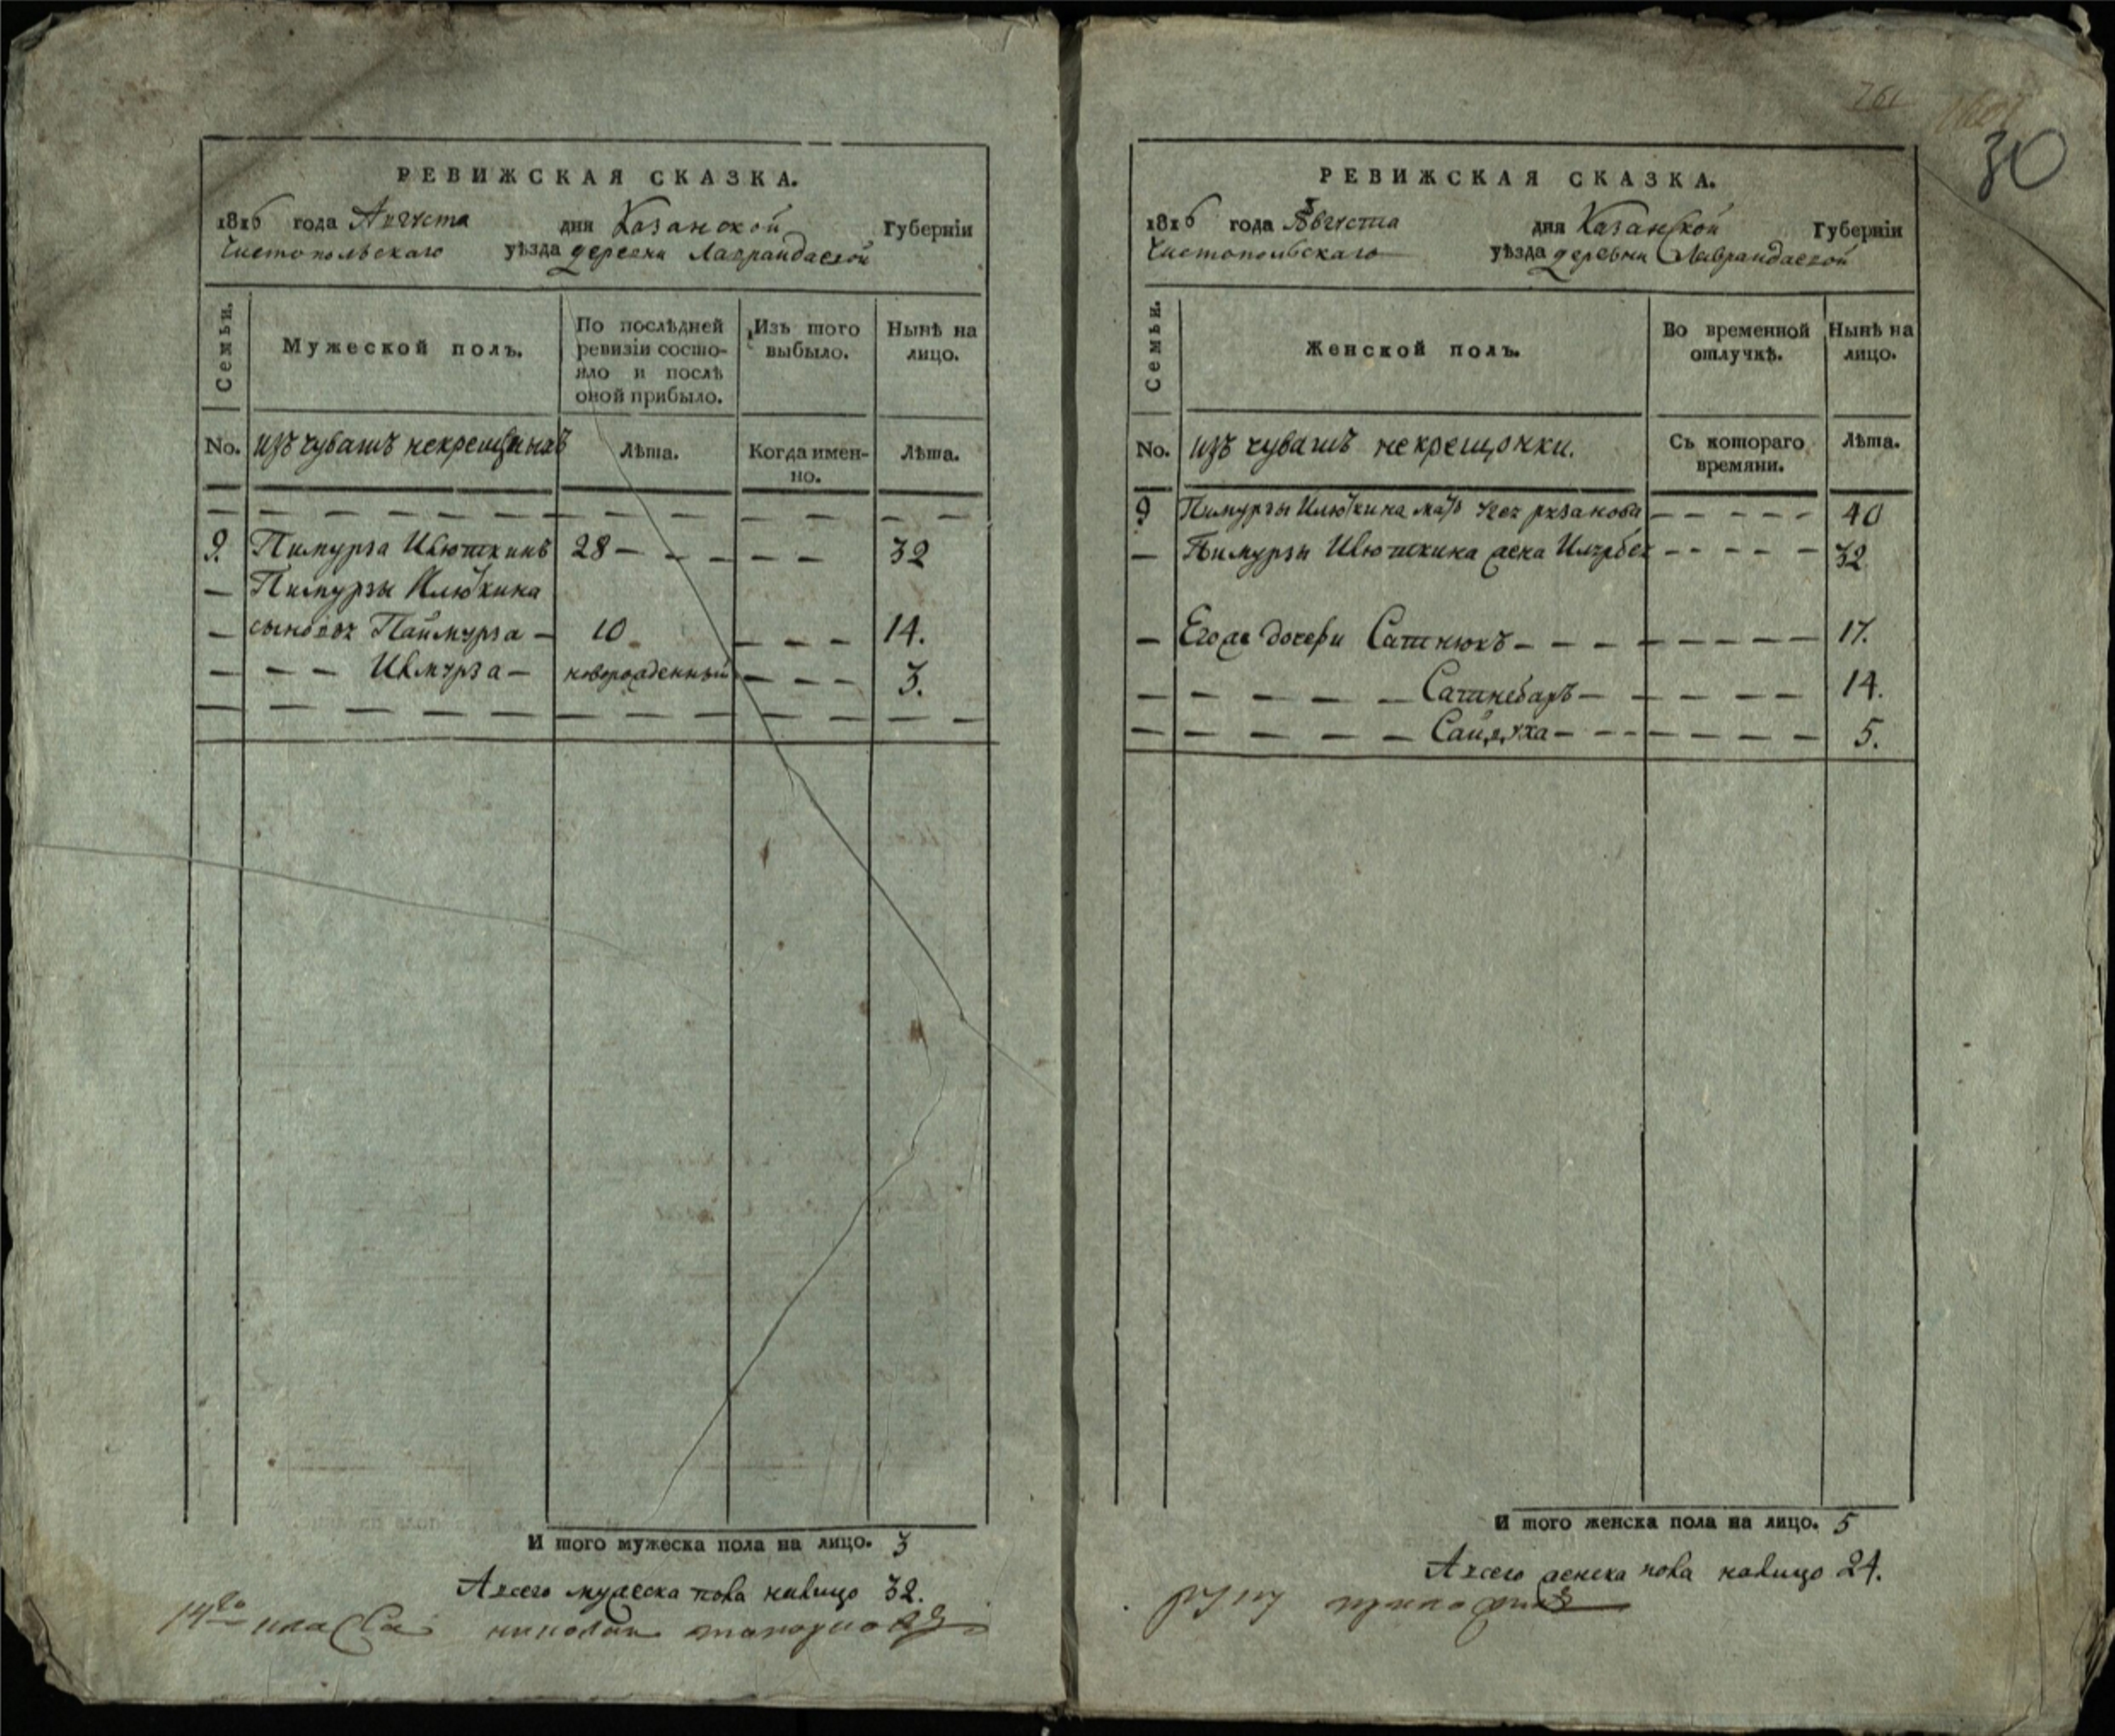 РЕВИЖСКАЯ СКАЗКА.
1816 года Августа дня Казанской Губерніи
Чистопольскаго уѣзда деревни Лаврандаевой
Семьи.
Мужеской полъ.
По послѣдней ревизіи состояло и послѣ оной прибыло.
Изъ того выбыло.
Нынѣ на лицо.
No. изъ чувашъ некрещеныхъ
Лѣта.
Когда именно.
Лѣта.
9. Пимурза Илюткинъ 28 — — — — — 32
— Пимурзы Илюткина
— сыновья Паймурза — 10 — — — 14.
— — — Илмурза — новорожденный — — — 3.
И того мужеска пола на лицо. 3
А всего мужеска пола налицо 32.
РЕВИЖСКАЯ СКАЗКА.
761
30
1816 года Августа дня Казанской Губерніи
Чистопольскаго уѣзда деревни Лаврандаевой
Семьи.
Женской полъ.
Во временной отлучкѣ.
Нынѣ на лицо.
No. изъ чувашъ некрещонки.
Съ котораго времяни.
Лѣта.
9 Пимурзы Илюткина мать — — — — — 40
— Пимурзы Илюткина жена Илчебек — — — — 32
— Его же дочери Сатнюкъ — — — — — — — — 17.
— — — — — — Сатнебаръ — — — — — 14.
— — — — — — — — — — — — — — 5.
И того женска пола на лицо. 5
А всего женска пола налицо 24.
руку приложилъ